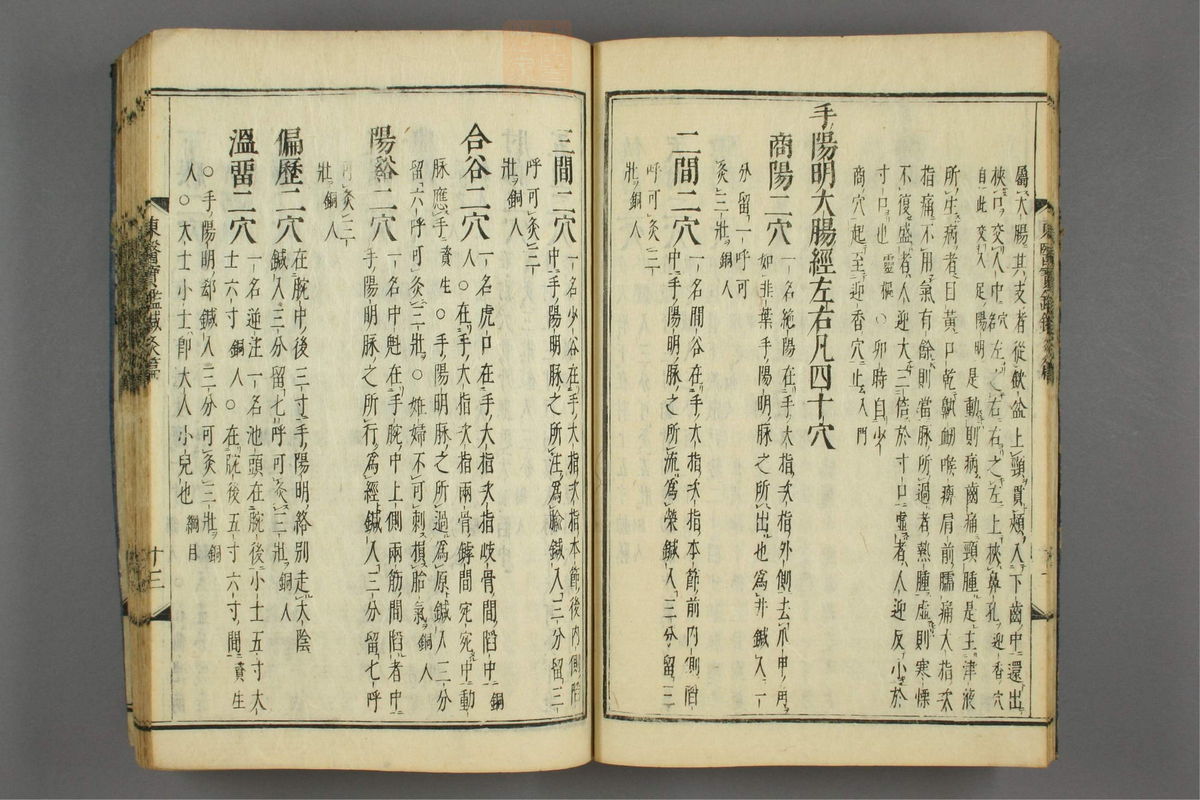 屬大腸其支者從缺盆上頸貫頰入下齒中還出
挾口交人中穴名左之右右之左上挾鼻孔迎香穴
自此交入足陽明是動則病齒痛頸腫是主津液
所生病者目黃口乾鼽衄喉痺肩前臑痛大指次
指痛不用氣有餘則當脉所過者熱腫虛則寒慄
不復盛者人迎大三倍於寸口虛者人迎反小於
寸口也靈樞○卯時自少
商穴起至迎香穴止入門
手陽明大腸經左右凡四十穴
商陽二穴一名絶陽在手大指次指外側去爪甲角
如韭葉手陽明脉之所出也爲井鍼入一
分留一呼可
灸三壯銅人
二間二穴一名間谷在手大指次指本節前内側陷
中手陽明脉之所流爲滎鍼入三分留三
呼可灸三
壯銅人
三間二穴一名少谷在手大指次指本節後内側陷
中手陽明脉之所注爲腧鍼入三分留三
呼可灸三
壯銅人
合谷二穴一名虎口在手大指次指歧骨間陷中銅
人○在手大指次指兩骨罅間宛宛中動
脉應手資生○手陽明脉之所過爲原鍼入三分
留六呼可灸三壯○姙婦不可刺損胎氣銅人
陽谿二穴一名中魁在手腕中上側兩筋間陷者中
手陽明脉之所行爲經鍼入三分留七呼
可灸三
壯銅人
偏歷二穴在腕中後三寸手陽明絡別走太陰
鍼入三分留七呼可灸三壯銅人
溫畱二穴一名逆注一名池頭在腕後小士五寸大
士六寸銅人○在腕後五寸六寸間資生
○手陽明郄鍼入三分可灸三壯銅
人○大士小士卽大人小兒也綱目
東醫寶鑑鍼灸篇
十三